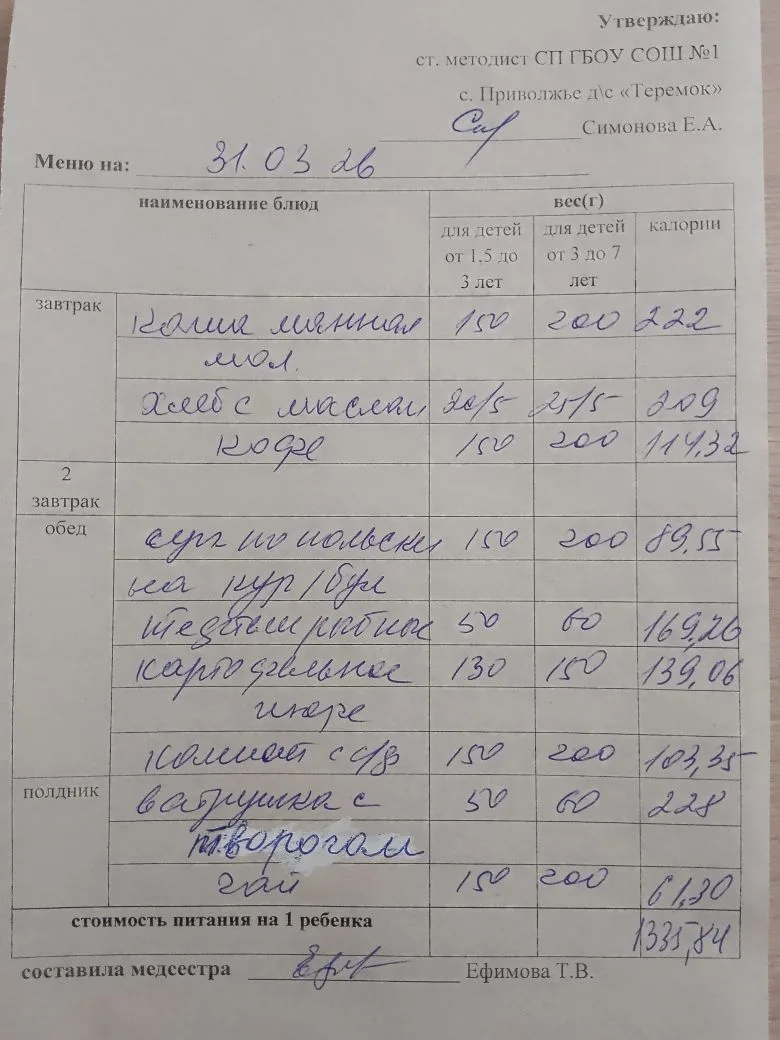 Утверждаю:
ст. методист СП ГБОУ СОШ №1
с. Приволжье д\с «Теремок»
Симонова Е.А.
Меню на: 31.03 26
наименование блюд вес(г)
для детей от 1,5 до 3 лет для детей от 3 до 7 лет калории
завтрак каша манная 150 200 222
мол.
хлеб с маслом 20/5 25/5 209
кофе 150 200 114,32
2 завтрак
обед суп по польски 150 200 89,55
на кур/бул
тефтели рыбные 50 60 169,26
картофельное 130 150 139,06
пюре
компот с с/ф 150 200 103,35
полдник ватрушка с 50 60 228
творогом
чай 150 200 61,30
стоимость питания на 1 ребенка 1335,84
составила медсестра Ефимова Т.В.